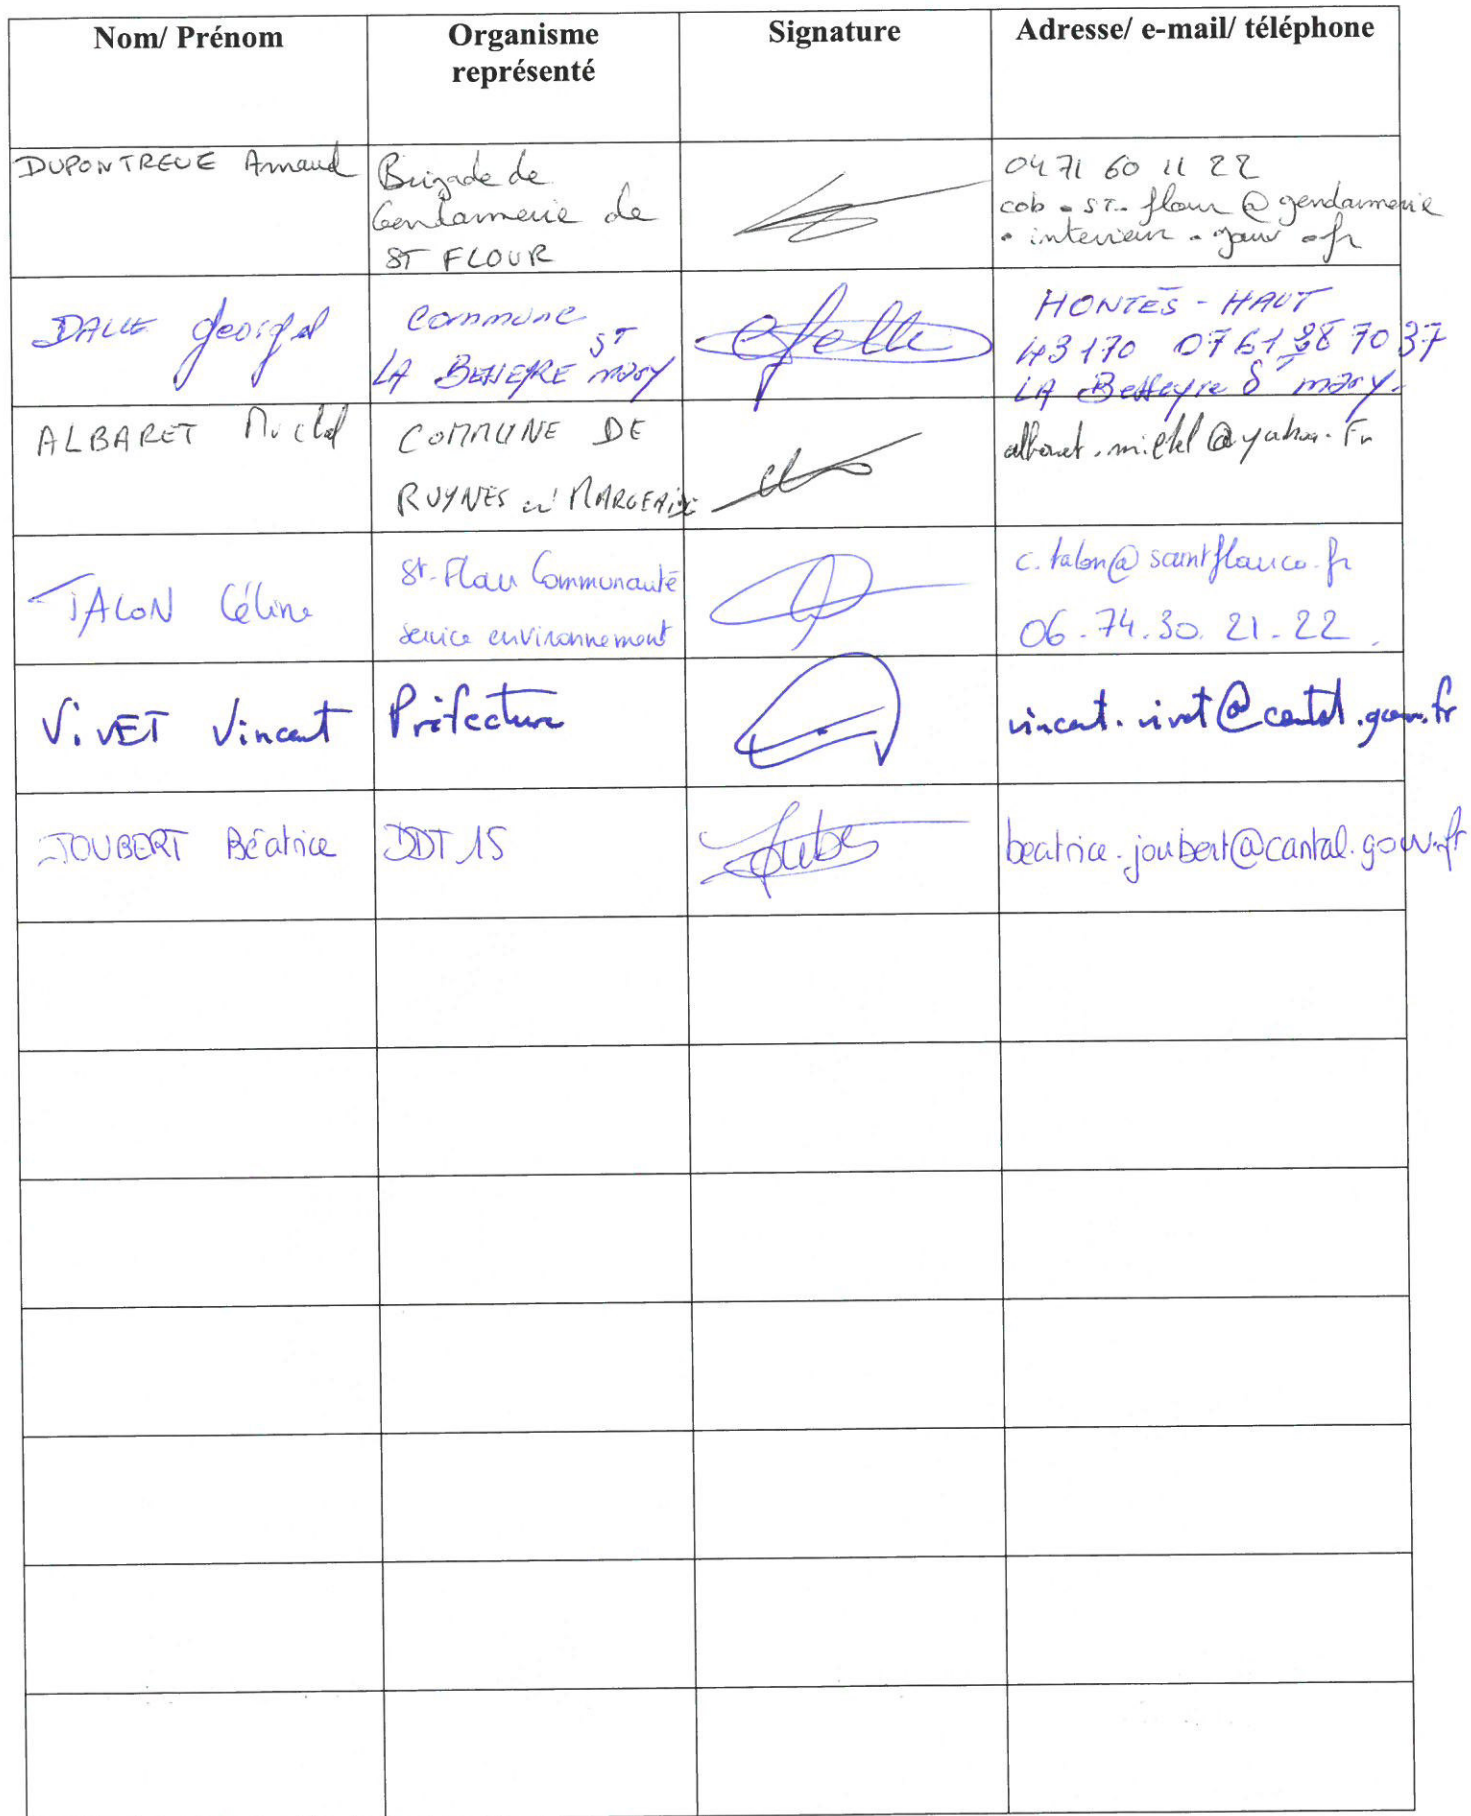 Nom/ Prénom
Organisme
représenté
Signature
Adresse/ e-mail/ téléphone
DUPONTREUE Arnaud
Brigade de
Gendarmerie de
ST FLOUR
04 71 60 11 22
cob - st - flour @ gendarmerie
. interieur . gouv . fr
DALLE Georges
Commune
LA BESSEYRE ST MARY
HONTÈS - HAUT
43170 07 61 38 70 37
LA Besseyre St mary.
ALBARET Michel
COMMUNE DE
RUYNES en MARGERIDE
albaret.michel@yahoo.Fr
TALON Céline
St-Flour Communauté
service environnement
c.talon@saintflourco.fr
06.74.30.21.22.
ViVET Vincent
Préfecture
vincent.vivet@cantal.gouv.fr
JOUBERT Béatrice
DDT 15
beatrice.joubert@cantal.gouv.fr